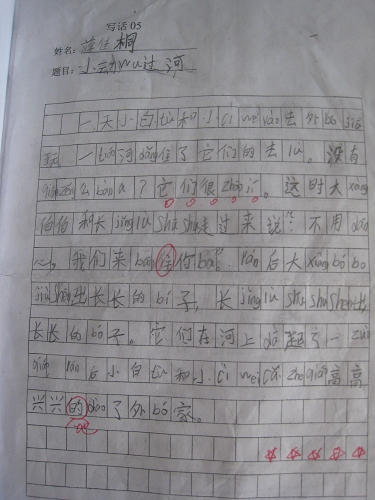 写话 05
姓名: 桐
题目: 小动wu过河
一天小白tù和小cì wei yào去外bó jiā
玩 一tiáo河dǎng住了它们的去lù。没有
qiáo zěn么bàn ne？它们很zháo jí。这时大xiàng
伯伯和长jǐng lù shū shu走过来说："不用dān
心，我们来bāng 你 ba"。rán后大xiàng bó bo
jiù shēn出长长的bí子，长jǐng lù shū shu shēn出
长长的bó子。它们在河上dā起了一zuò
qiáo rán后小白tù和小cì wei cǎi zhe qiáo高高
兴兴的dào了外bó家。